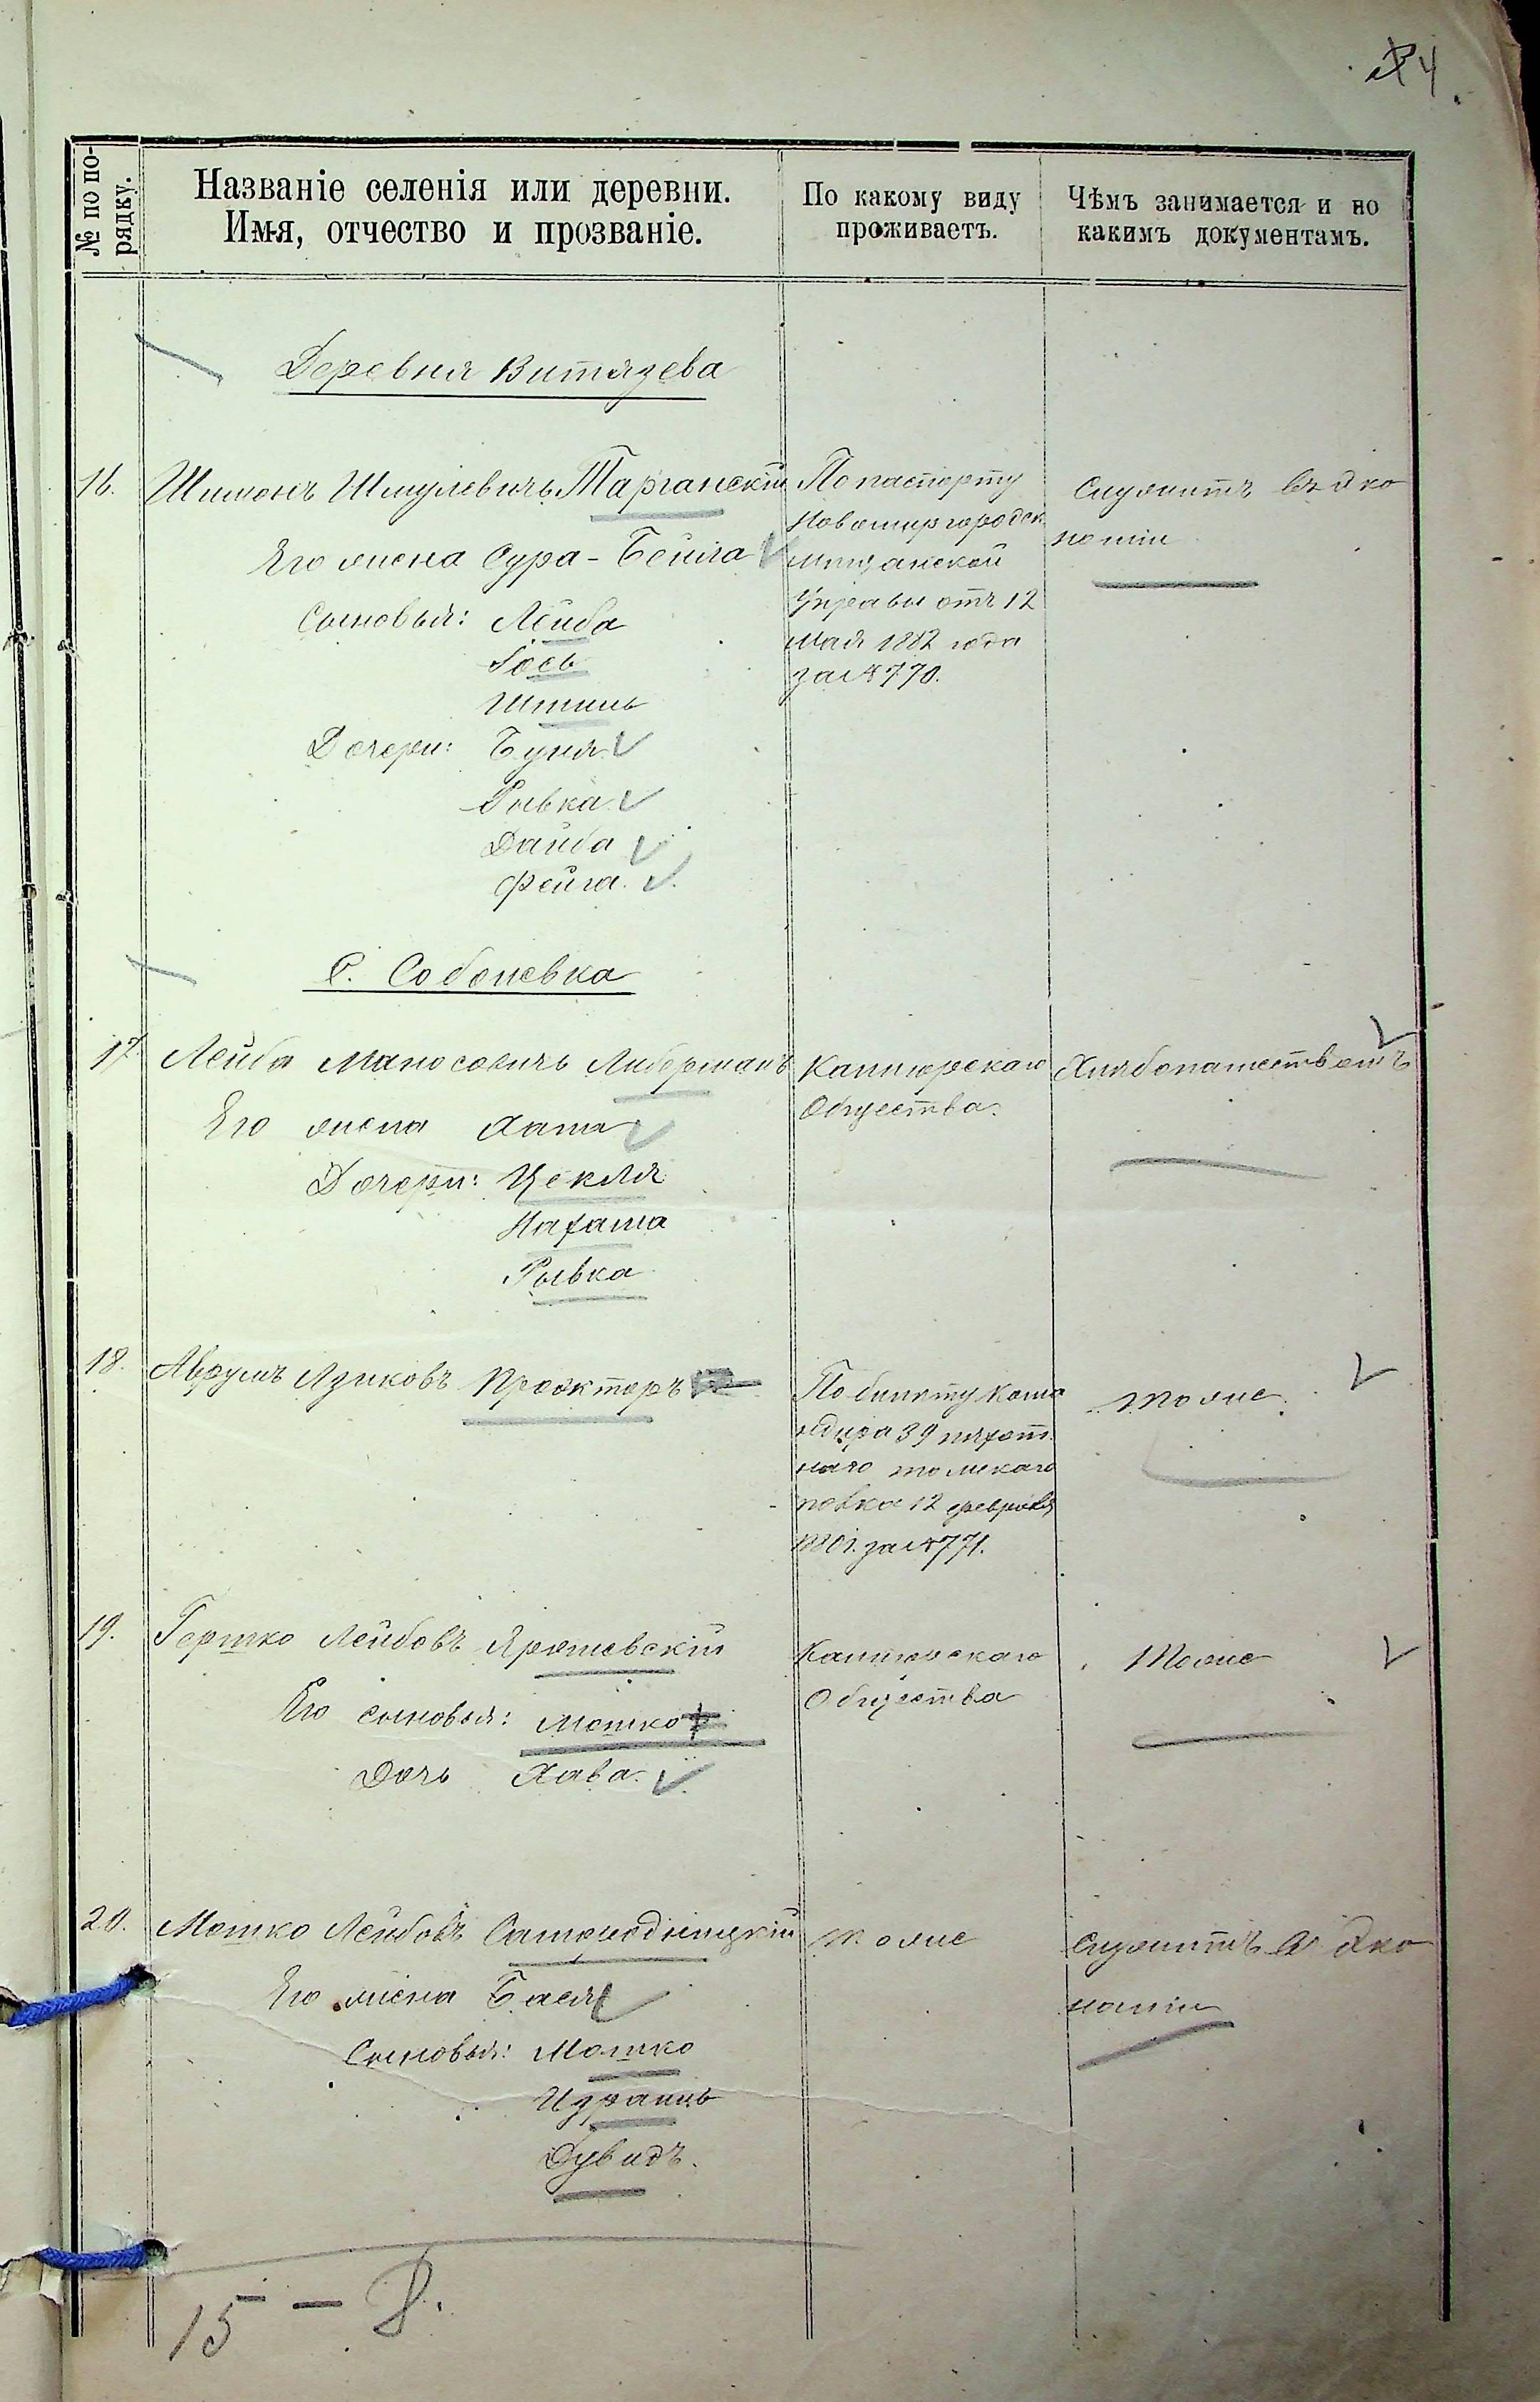 4
№ по по-
рядку.
Названіе селенія или деревни.
Имя, отчество и прозваніе.
По какому виду
проживаетъ.
Чѣмъ занимается и по
какимъ документамъ.
Деревня Витязева
16. Шимонъ Шмулевичъ Тарганскій
Его жена Сура-Бейла
Сыновья: Лейба
Іось
Дочери: Буня
Рывка
Фейга.
По паспорту
Новомиргородск.
мѣщанской
Управы отъ 12
мая 1882 года
за № 770.
Служитъ въ эко
номіи
С. Соболевка
17 Лейба Маносовичъ Либерманъ
Его жена Хана
Дочери: Цекля
Нахама
Рывка
Общества.
Хлѣбопашествомъ
18. Аврумъ Айзиковъ Прокторъ
По билету кома
ндира 39 пѣхот.
наго томскаго
полка 12 февраля
за № 771.
тоже
19. Гершко Лейбовъ Ярошевскій
Его сыновья: Мошко
Дочь Хава.
Общества
Тоже
20. Мошко Лейбовъ
Его жена Бася
Сыновья: Мошко
Израиль
Дувидъ.
тоже
служитъ въ эко
номіи
15 – 8.